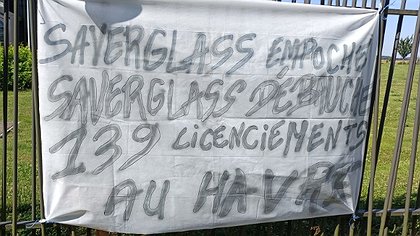 SAVERGLASS EMPOCHE
SAVERGLASS DÉBAUCHE
139 LICENCIEMENTS
AU HAVRE